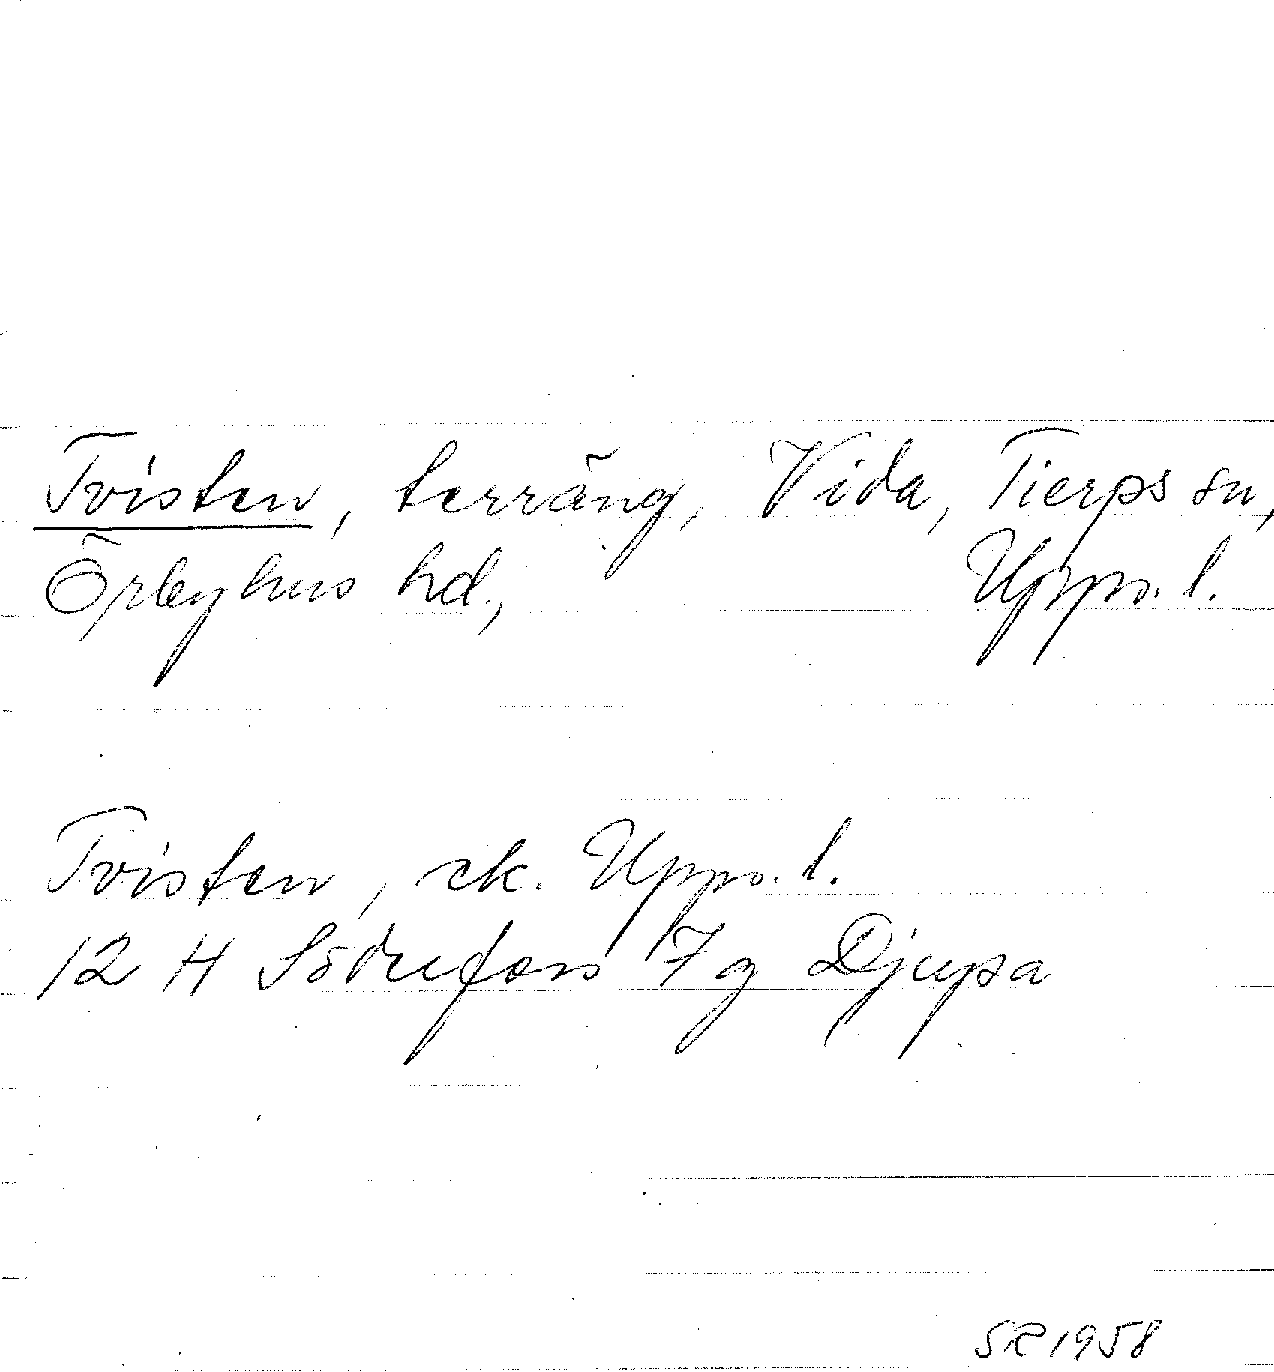 Tvisten, terräng, Vida, Tierps sn,
Örbyhus hd., Upps. l.
Tvisten, ek. Upps. l.
12 H Söderfors 7 g Djupa
SR 1958